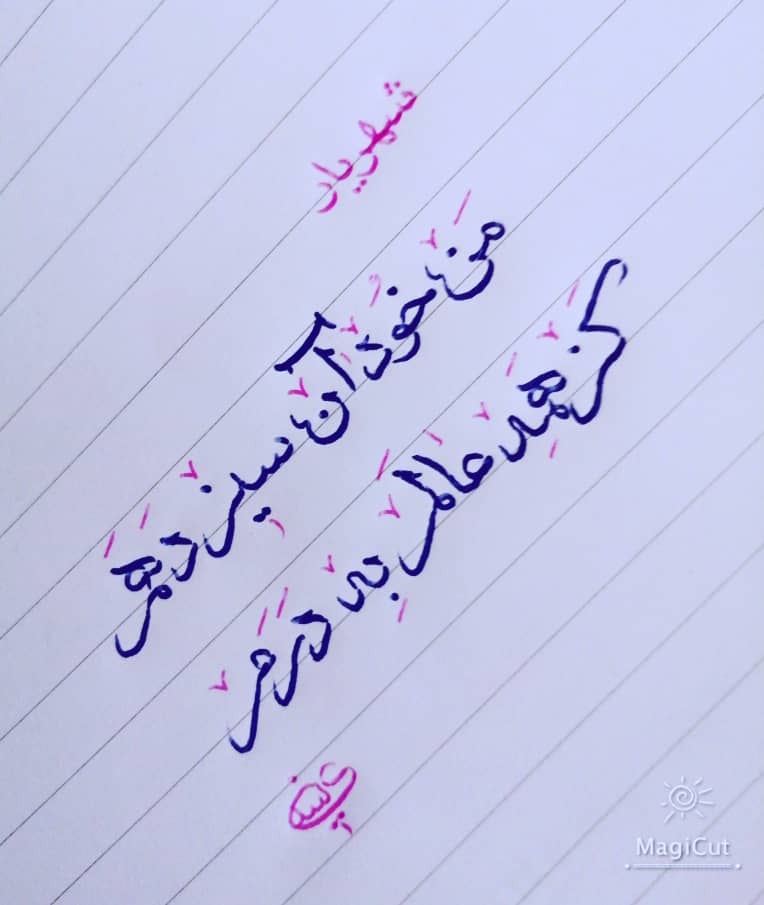 شهریار
من خود آن سیزدهم
کز همه عالم به درم
MagiCut